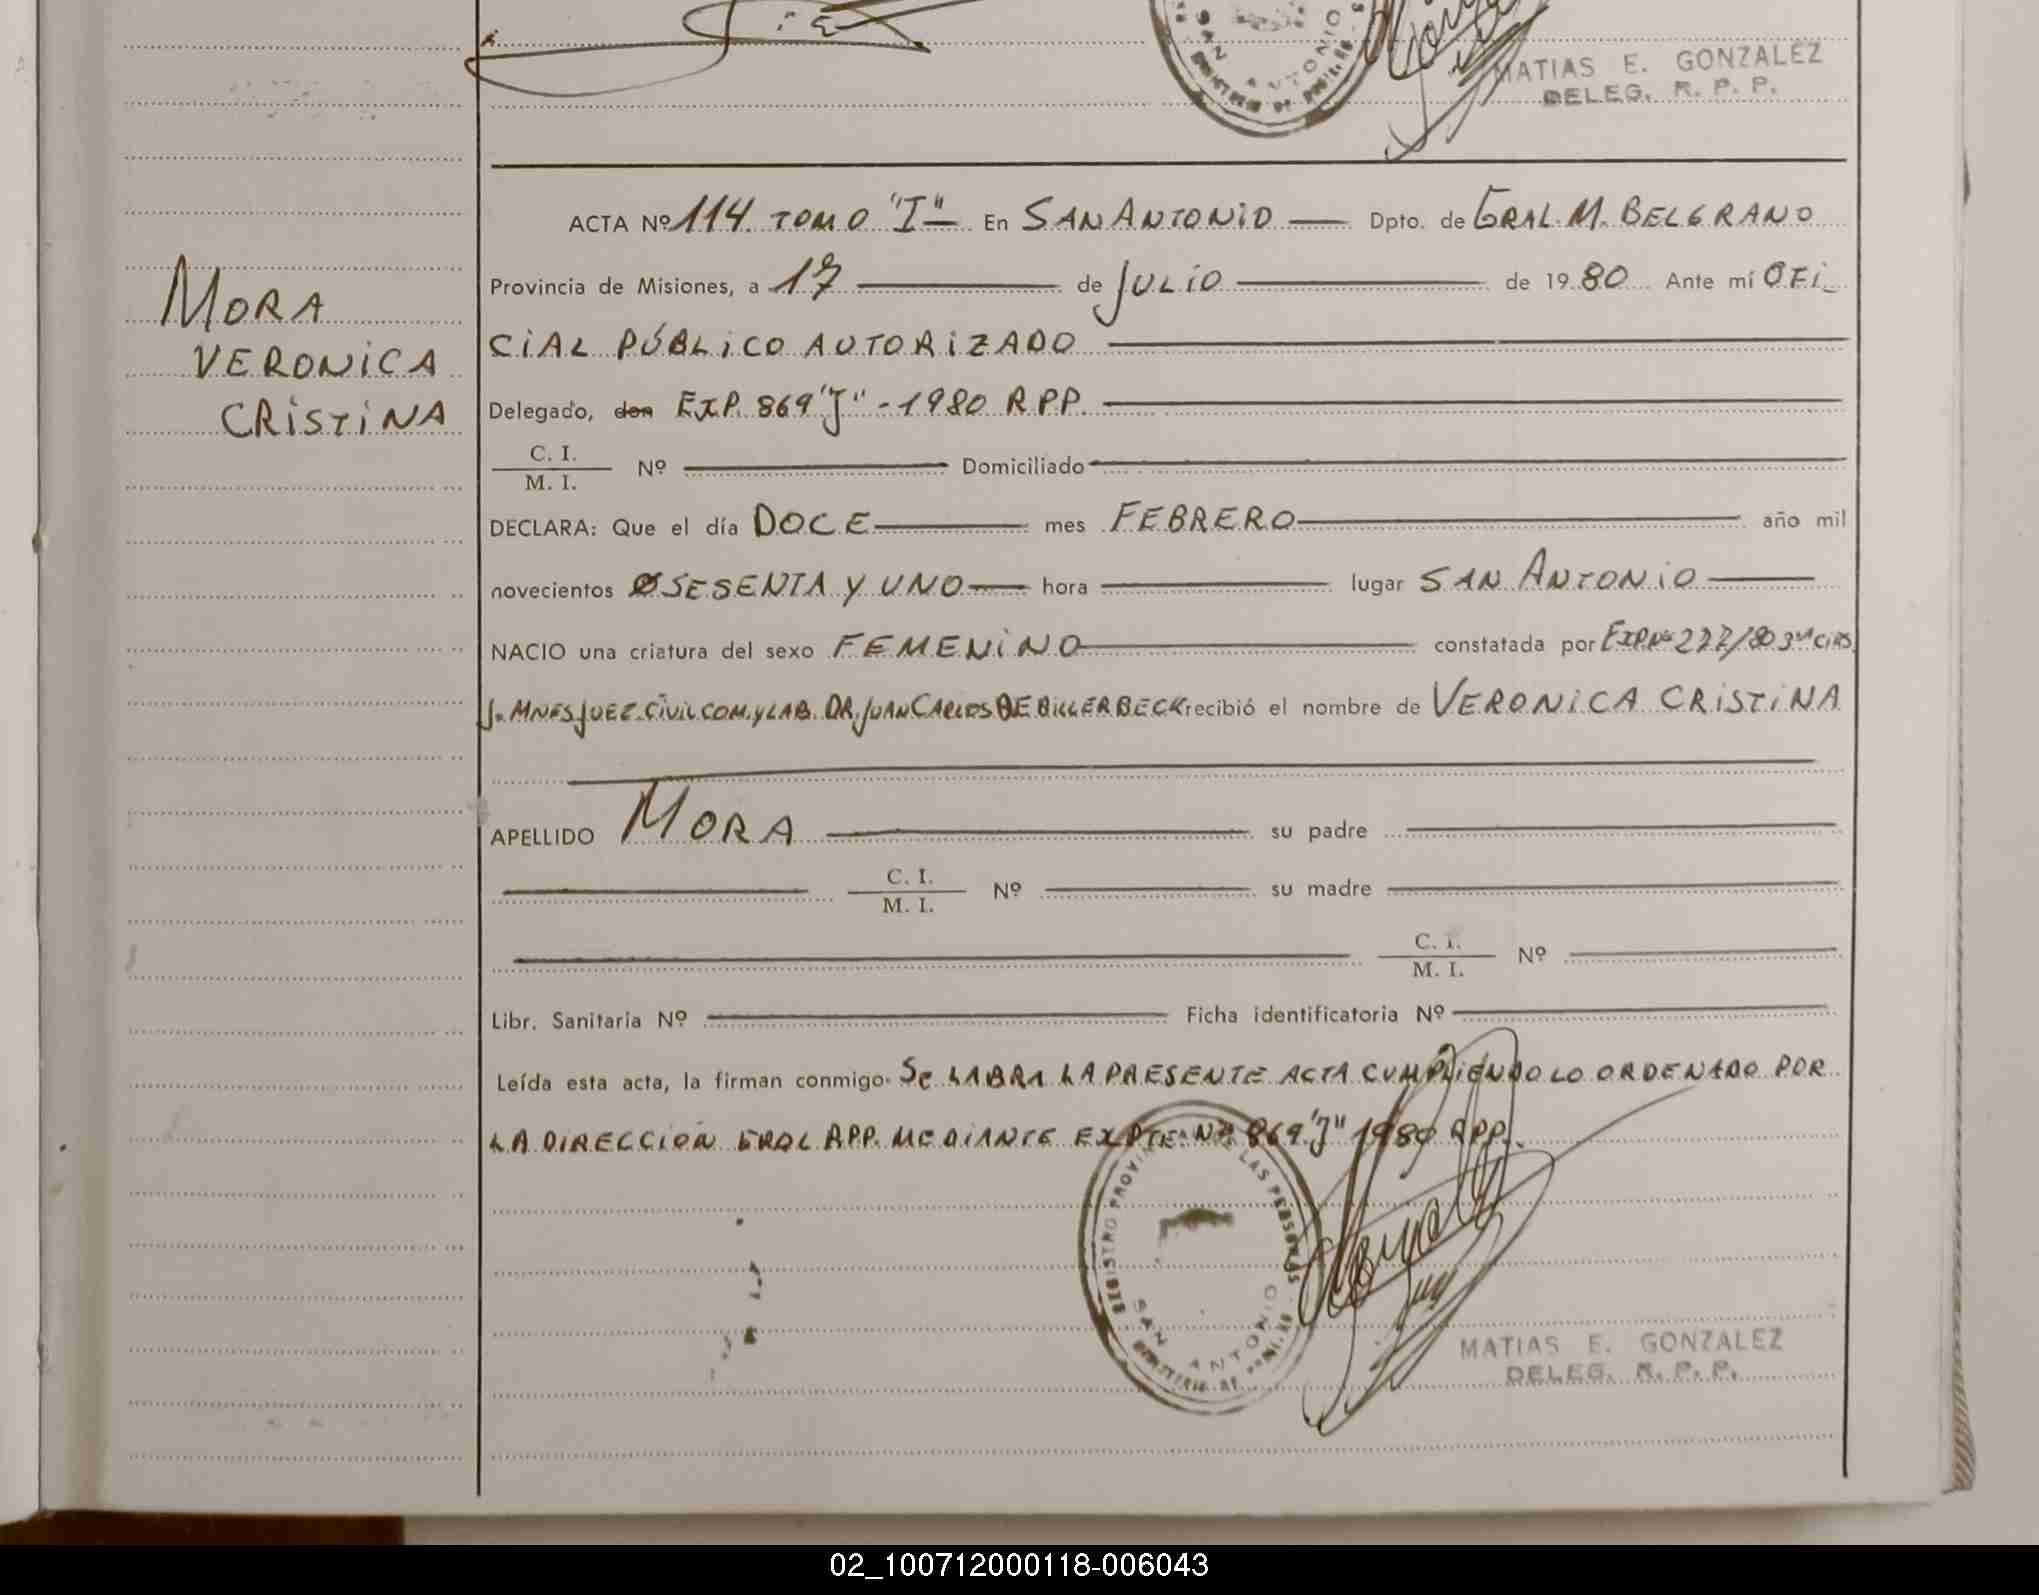 SAN ANTONIO
MATIAS E. GONZALEZ
DELEG. R. P. P.
ACTA Nº 114 TOMO "I" En SAN ANTONIO Dpto. de GRAL. M. BELGRANO
Provincia de Misiones, a 17 de JULIO de 1980 Ante mí OFI_
MORA
CIAL PÚBLICO AUTORIZADO
VERONICA
Delegado, don EXP. 869 "J" - 1980 R.P.P.
CRISTINA
C. I.
M. I. Nº Domiciliado
DECLARA: Que el día DOCE mes FEBRERO año mil
novecientos SESENTA Y UNO hora lugar SAN ANTONIO
NACIO una criatura del sexo FEMENINO constatada por EXP. Nº 277/80 3ª CIRS.
J. MNES JUEZ CIVIL COM. Y LAB. DR. JUAN CARLOS DE BILLERBECK recibió el nombre de VERONICA CRISTINA
APELLIDO MORA su padre
C. I.
M. I. Nº su madre
C. I.
M. I. Nº
Libr. Sanitaria Nº Ficha identificatoria Nº
Leída esta acta, la firman conmigo. SE LABRA LA PRESENTE ACTA CUMPLIENDO LO ORDENADO POR
LA DIRECCIÓN GRAL RPP. MEDIANTE EXPTE. Nº 869 "J" 1980 RPP.
REGISTRO PROVINCIAL DE LAS PERSONAS
SAN ANTONIO
MATIAS E. GONZALEZ
DELEG. R. P. P.
02_100712000118-006043